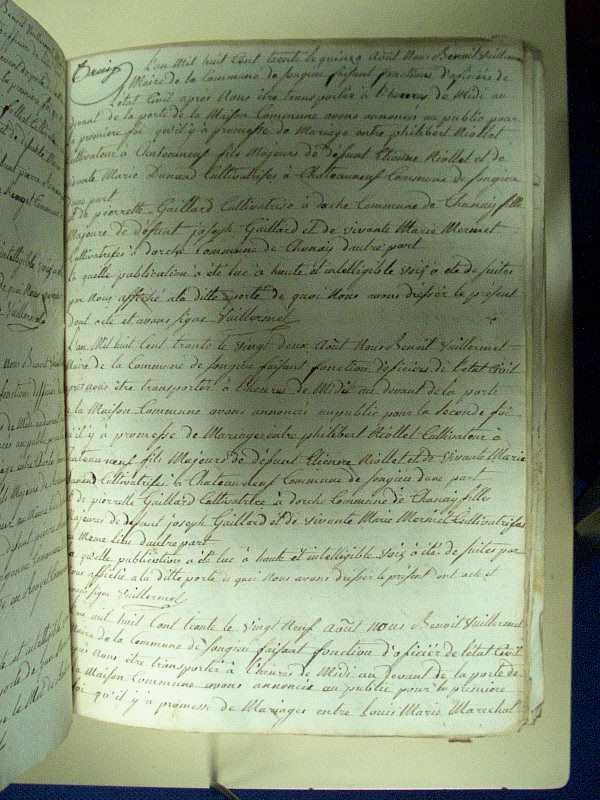 L'an Mil huit Cent trente le quinze Août Nous Benoit Vuillermet
Maire de la Commune de Songieu faisant fonctions d'officier de
l'état Civil après Nous être transporter à l'heure de Midi au
devant de la porte de la Maison Commune avons annoncés au public pour
la première foi qu'il y à promesse de Mariage entre philibert Niollet
Cultivateur à Chateauneuf fils Majeurs de défunt Etienne Niollet et de
vivante Marie Cultivatrise à Chateauneuf Commune de Songieu
dune part
Et de pierrette Gaillard Cultivatrise à dorche Commune de Chanay fille
Majeure de défunt joseph Gaillard Et de vivante Marie Mermet
Cultivatrises à dorche Commune de Chanay dautre part
la quelle publication à été luc à haute et intelligible voix à été de suites
par nous affiché à la ditte porte de quoi Nous avons dréssér le présent
dont acte et avons signe Vuillermet
L'an Mil huit Cent trente le vingt deux Août Nous Benoit Vuillermet
Maire de la Commune de Songieu faisant fonction d'oficiers de l'état Civil
après nous être transporter à l'heures de Midi au devant de la porte
de la Maison Commune avons annoncés au public pour la seconde foi
qu'il y à promesse de Mariage entre philibert Niollet Cultivateur à
Chateauneuf fils Majeurs de défunt Etienne Niollet et de vivante Marie
Cultivatrises à Chateauneuf Commune de Songieu dune part
Et de pierrette Gaillard Cultivatrice à dorche Commune de Chanay fille
Majeures de défunt joseph Gaillard Et de vivante Marie Mermet Cultivatrises
même lieu dautre part
la quelle publication à été luc à haute et intelligible voix à été de suites par
nous affiché à la ditte porte de quoi Nous avons dressér le présent dont acte et
avons signe Vuillermet
L'an mil huit Cent trente le vingt Neuf Août nous Benoit Vuillermet
Maire de la Commune de Songieu faisant fonction d'oficiér de l'état Civil
après Nous être transporter à l'heures de Midi au devant de la porte de
la Maison Commune avons annoncés au public pour la première
foi qu'il y à promesse de Mariages entre Louis Marie Marechal